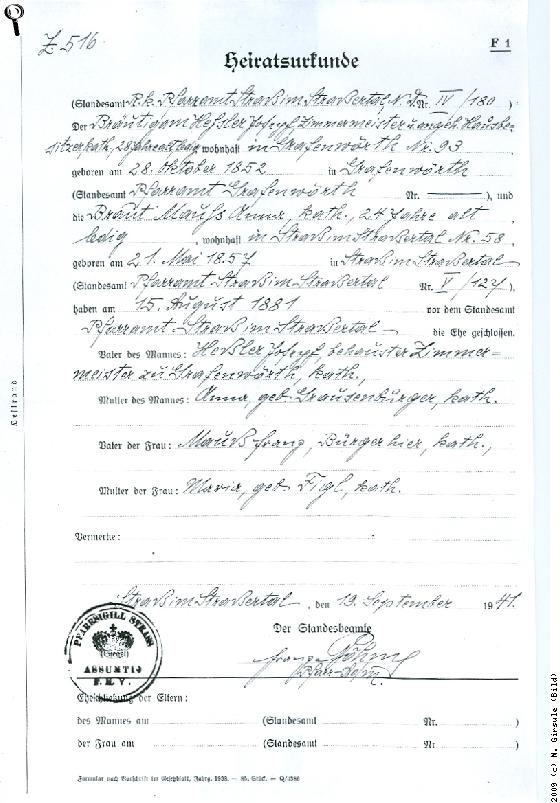 Z 516.
F 1
Heiratsurkunde
(Standesamt R.k. Pfarramt Straß im Straßertal, N.D. Nr. IV/180)
Der Bräutigam Hessler Josepf, Zimmermeister u. angeh. Hausbe-
sitzer, kath., 28 Jahre alt, ledig wohnhaft in Grafenwörth Nr. 93
geboren am 28. Oktober 1852 in Grafenwörth
(Standesamt Pfarramt Grafenwörth Nr. ——), und
die Braut Mauß Anna, kath., 24 Jahre alt,
ledig, wohnhaft in Straß im Straßertal Nr. 58,
geboren am 21. Mai 1857 in Straß im Straßertal
(Standesamt Pfarramt Straß im Straßertal Nr. V/127),
haben am 15. August 1881 vor dem Standesamt
Pfarramt Straß im Straßertal die Ehe geschlossen.
Vater des Mannes: Heßler Josepf, behauster Zimmer=
meister zu Grafenwörth, kath.,
Mutter des Mannes: Anna, geb. Grausenburger, kath.
Vater der Frau: Mauß Franz, Bürger hier, kath.,
Mutter der Frau: Maria, geb. Figl, kath.
Vermerke:
Straß im Straßertal, den 19. September 1941.
Der Standesbeamte
(Siegel)
PFARRSIGILL STRASS
ASSUMTIO
B.M.V.
Franz Böhm
Eheschließung der Eltern:
des Mannes am (Standesamt Nr. )
der Frau am (Standesamt Nr. )
Formular nach Vorschrift im Gesetzblatt, Jahrg. 1938. —
2009 (c) N. Girsule (Bild)